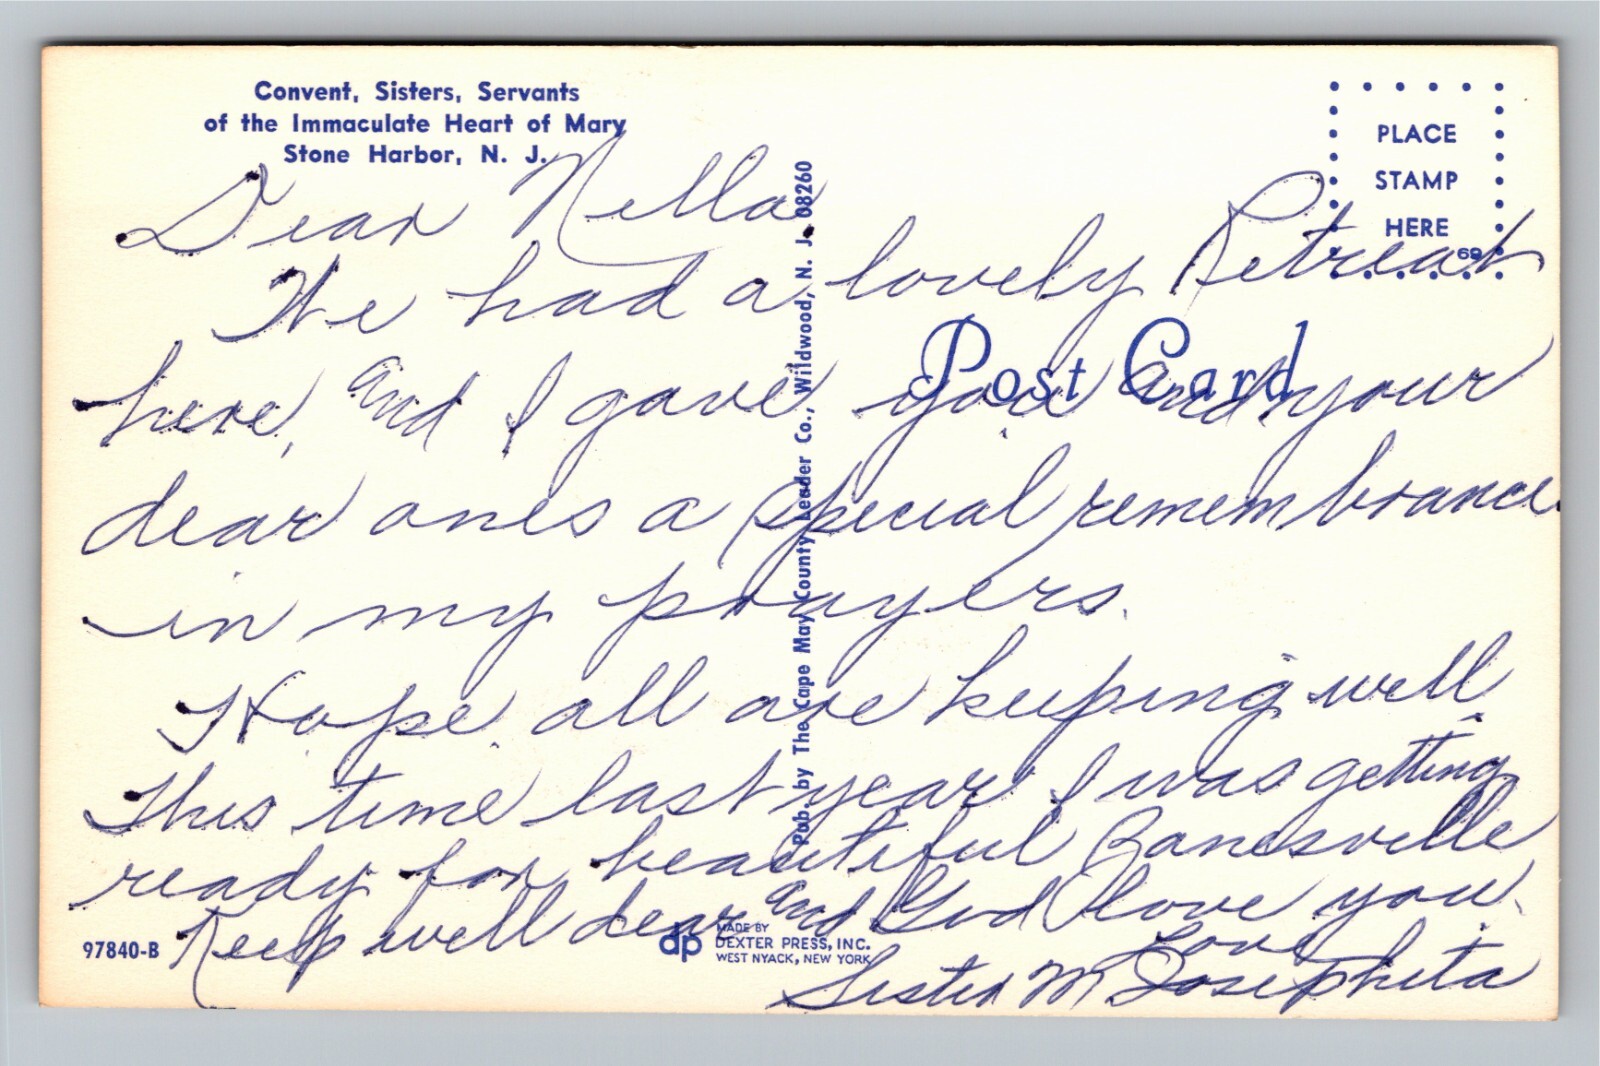 Convent, Sisters, Servants
of the Immaculate Heart of Mary
Stone Harbor, N. J.
PLACE
STAMP
HERE
69
Post Card
Pub. by The Cape May County Leader Co., Wildwood, N. J. 08260
Dear Nella
We had a lovely Retreat
here, and I gave you and your
dear ones a special remembrance
in my prayers.
Hope all are keeping well.
This time last year I was getting
ready for beautiful
Keep well dear and God love you.
Love
Sister M Josephita
97840-B
dp
MADE BY
DEXTER PRESS, INC.
WEST NYACK, NEW YORK